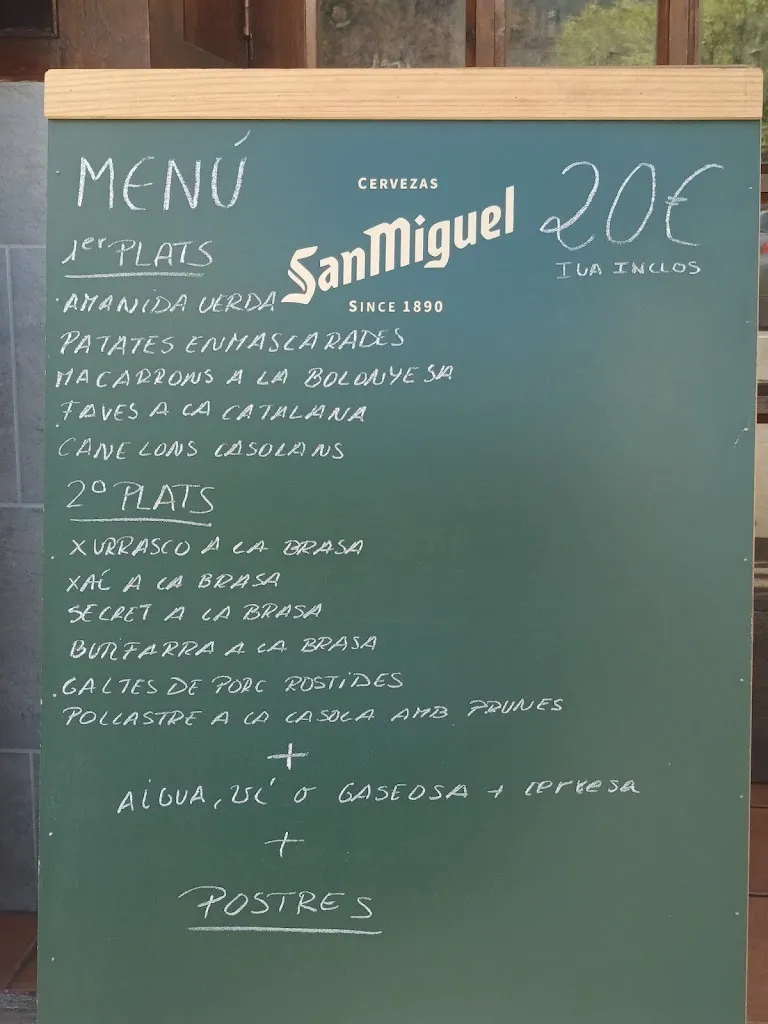 MENÚ
CERVEZAS
San Miguel
SINCE 1890
20€
IVA INCLOS
1er PLATS
AMANIDA VERDA
PATATES ENMASCARADES
MACARRONS A LA BOLONYESA
FAVES A LA CATALANA
CANELONS CASOLANS
2º PLATS
XURRASCO A LA BRASA
XAI A LA BRASA
SECRET A LA BRASA
BUTIFARRA A LA BRASA
GALTES DE PORC ROSTIDES
POLLASTRE A LA CASOLA AMB PRUNES
+
AIGUA, VÍ O GASEOSA + cervesa
+
POSTRES